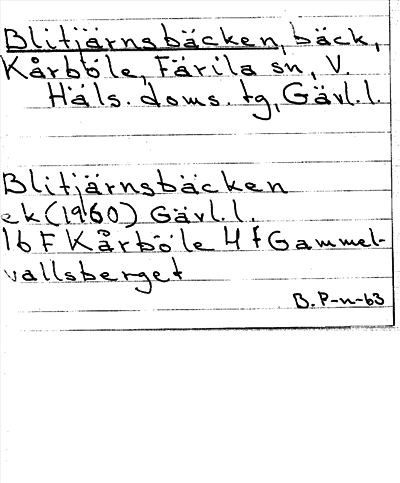 Blitjärnsbäcken, bäck,
Kårböle, Färila sn, V.
Häls. doms. tg, Gävl. l.
Blitjärnsbäcken
ek (1960) Gävl. l.
16 F Kårböle 4 f Gammel-
vallsberget
B. P-n-63